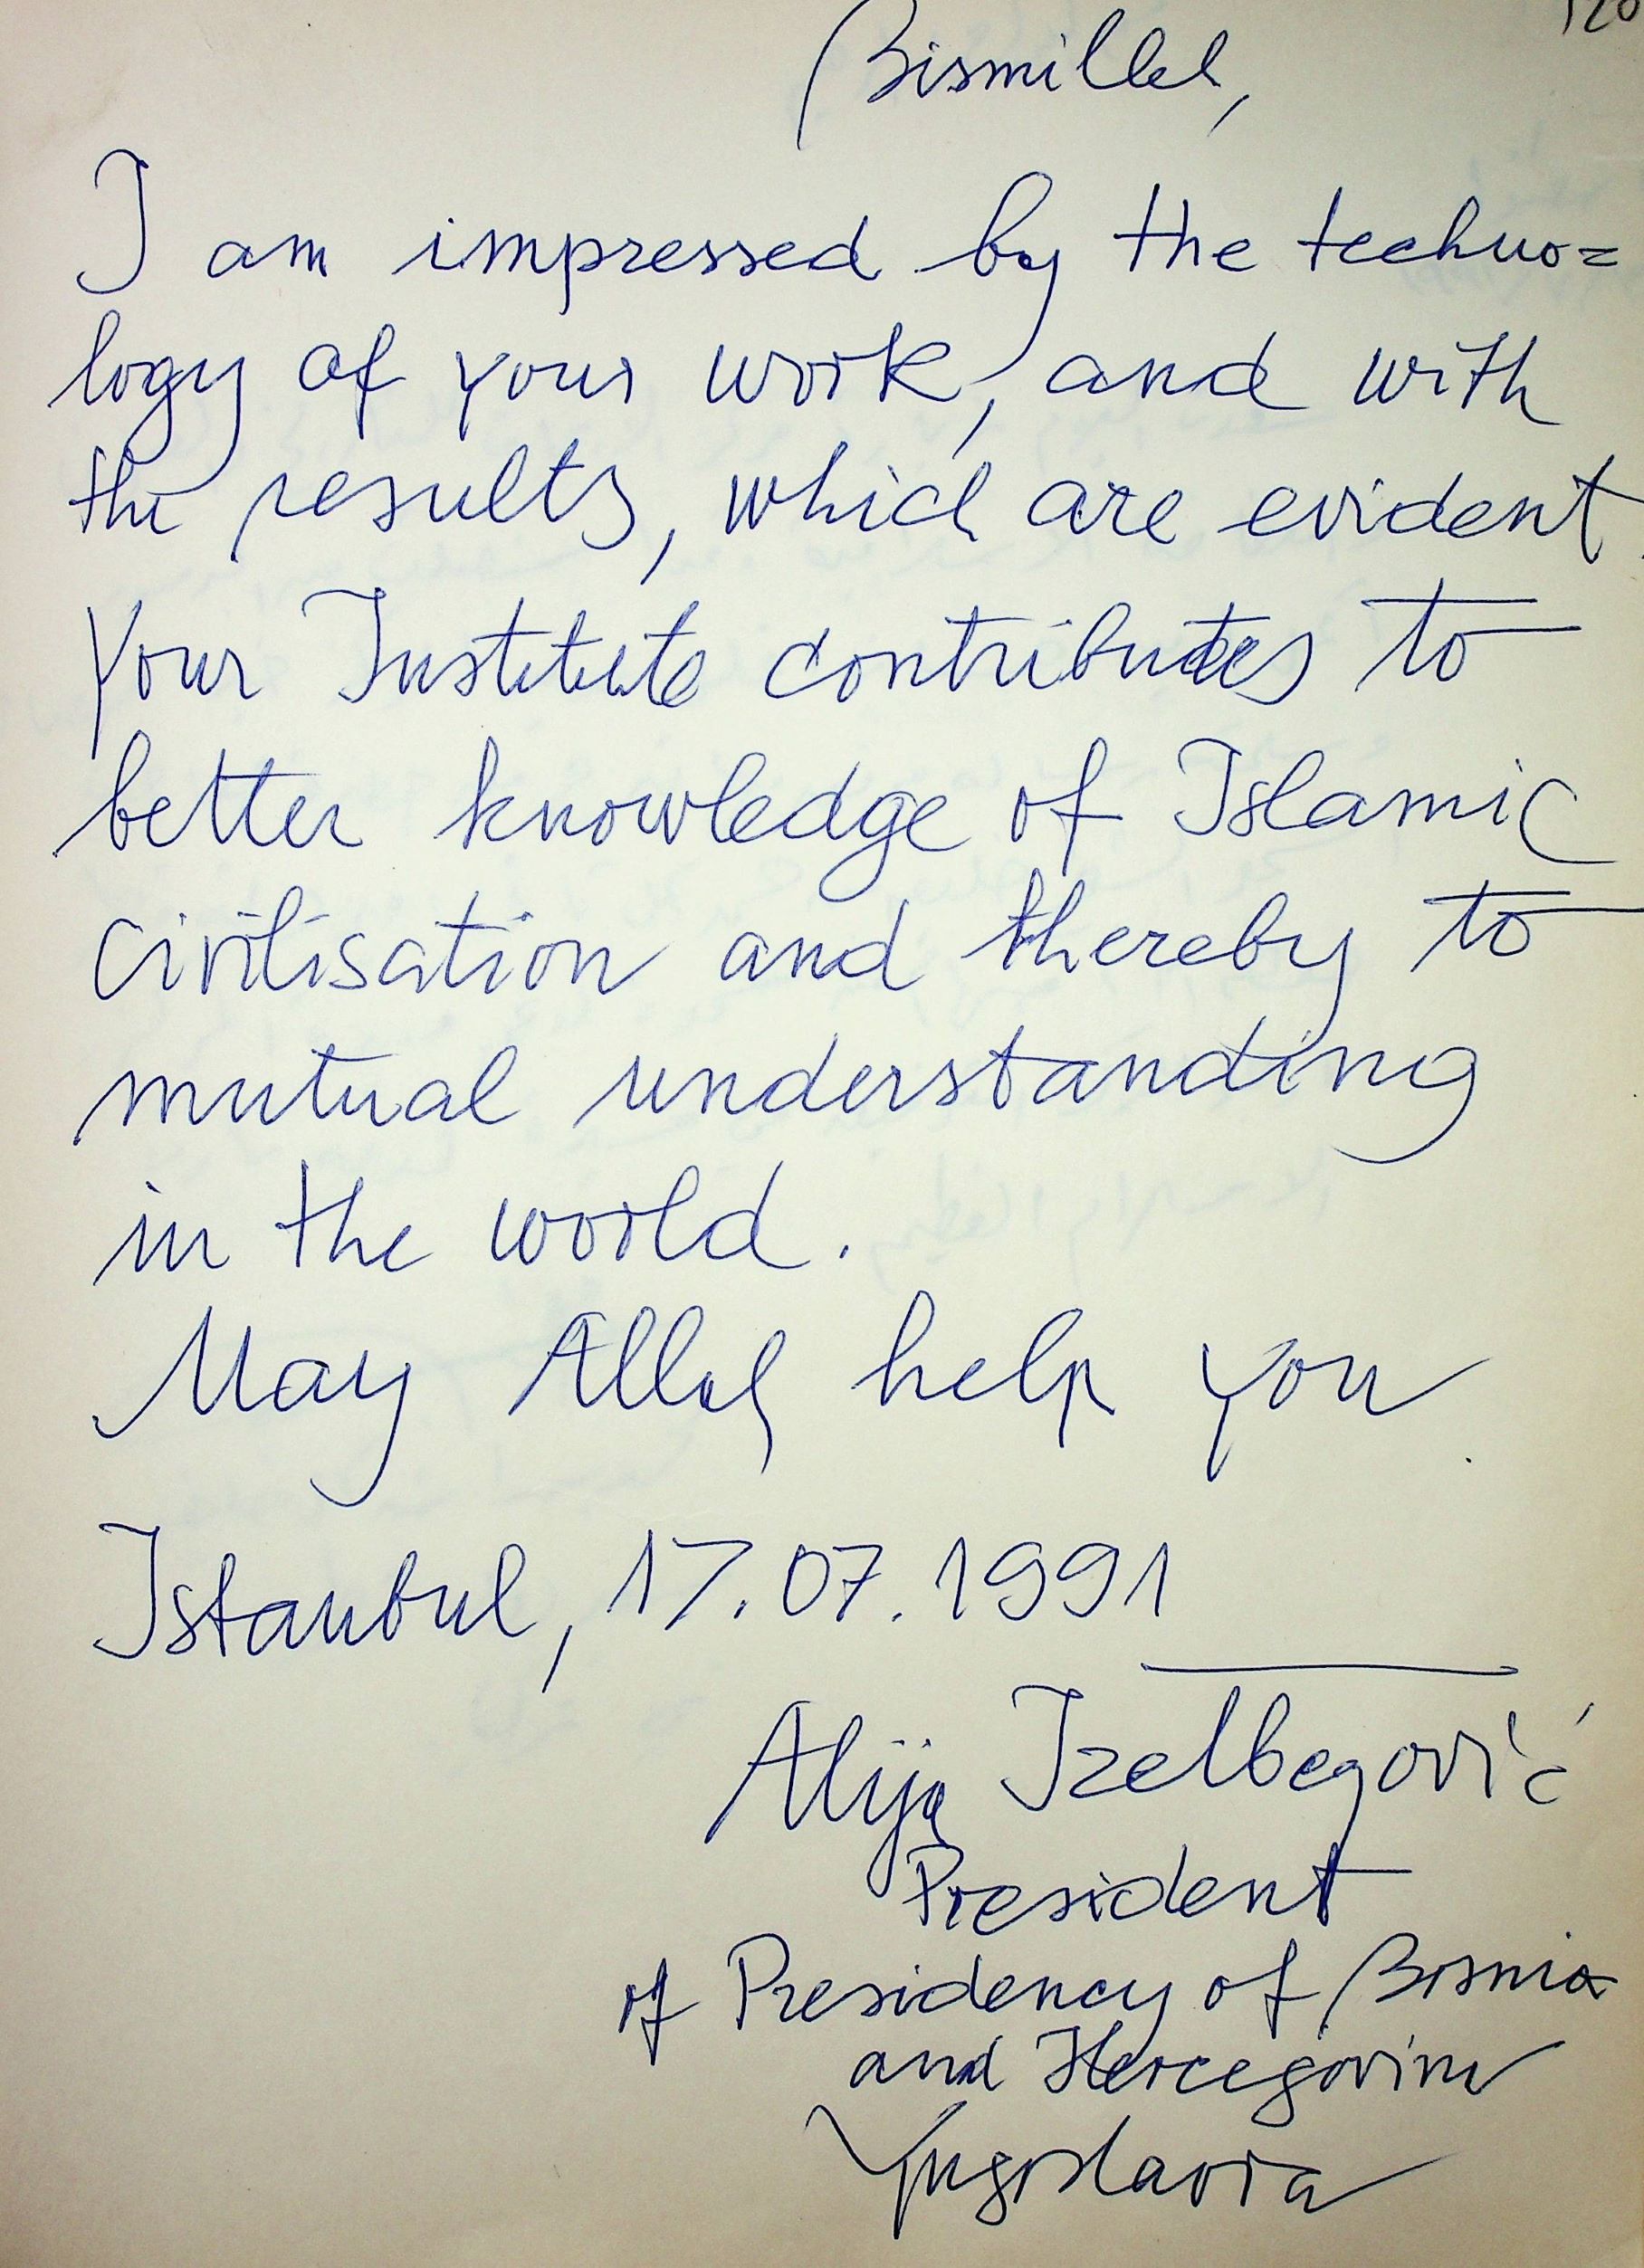 120
Bismillah,
I am impressed by the techno=
logy of your work, and with
the results, which are evident.
Your Institute contributes to
better knowledge of Islamic
civilisation and thereby to
mutual understanding
in the world.
May Allah help you
Istanbul, 17.07.1991
Alija Izetbegović
President
of Presidency of Bosnia
and Hercegovina
Yugoslavia